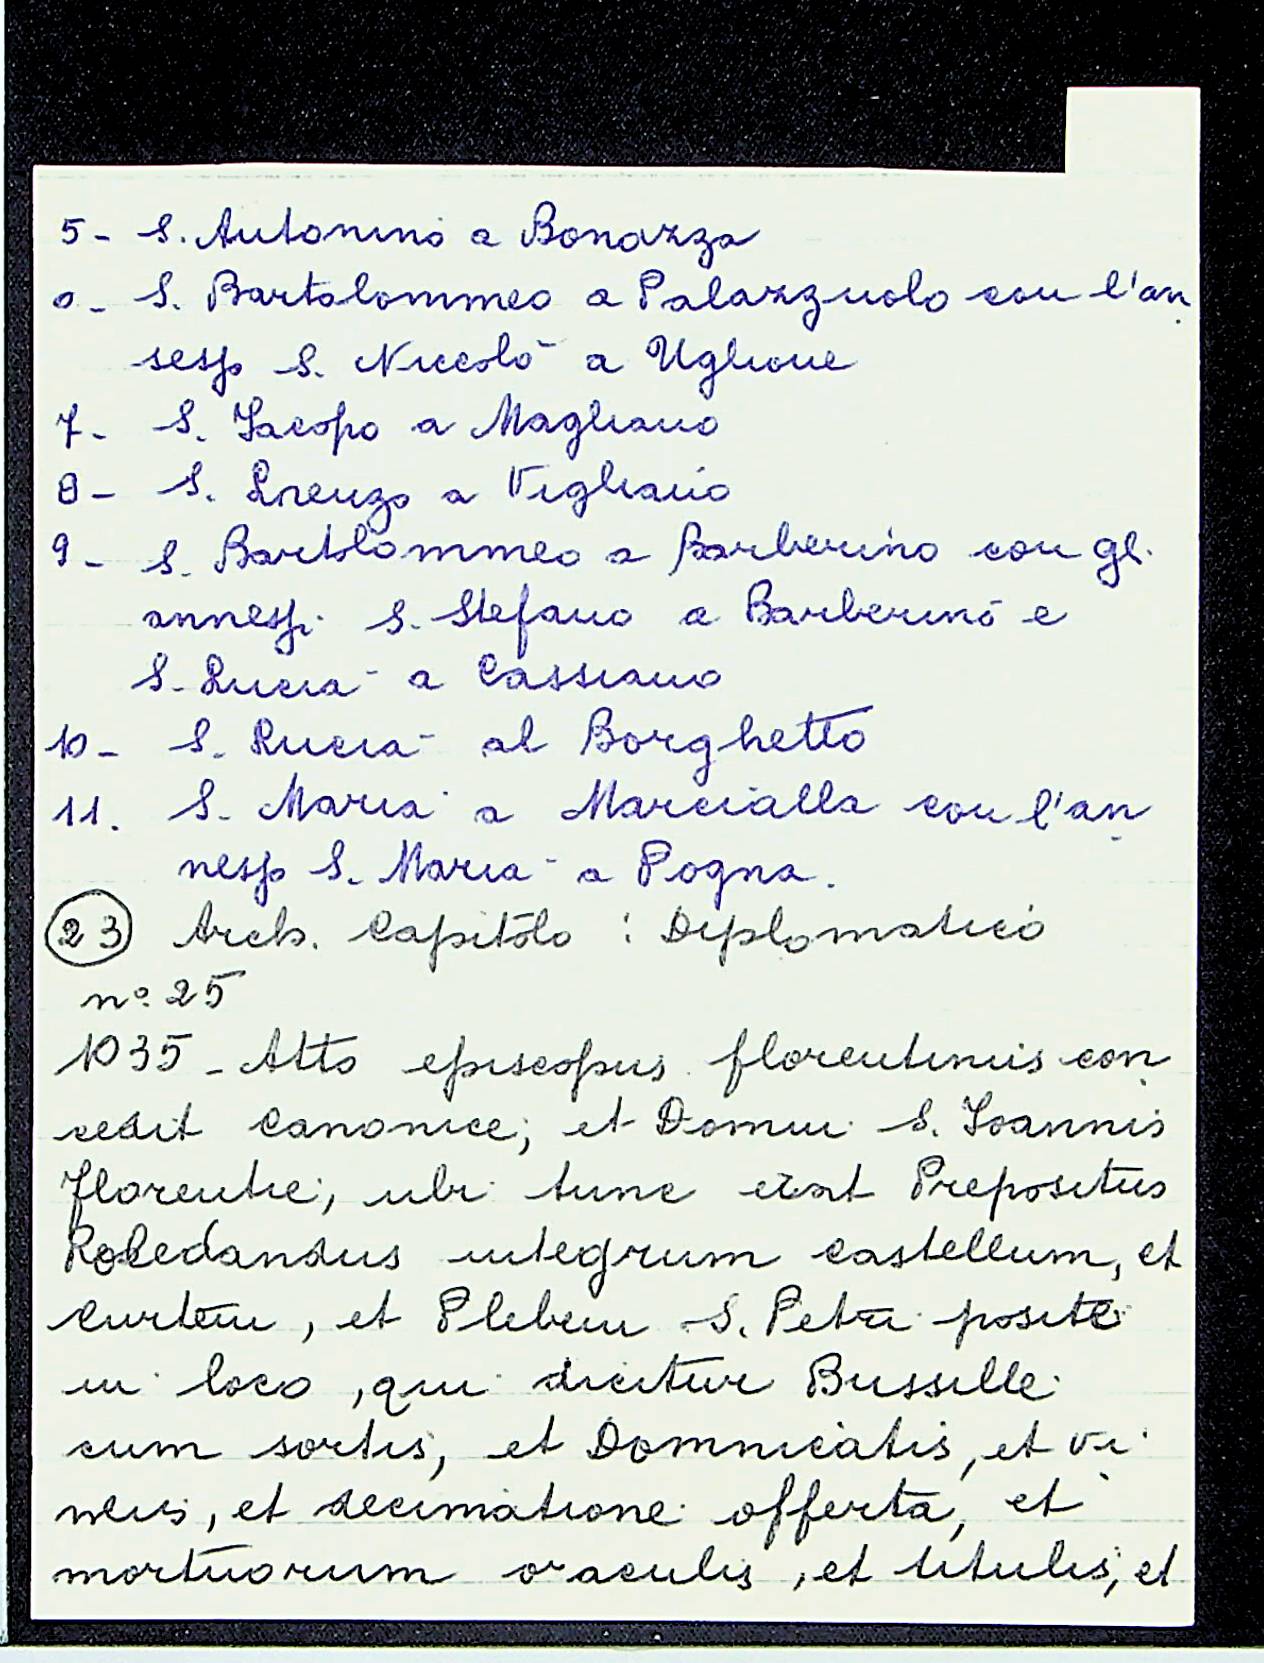 5- S. Antonino a Bonazza
6- S. Bartolommeo a Palazzuolo con l'an
nesso S. Niccolò a Uglione
7- S. Jacopo a Magliano
8- S. Lorenzo a Vigliano
9- S. Bartolommeo a Barberino con gl.
annessi S. Stefano a Barberino e
S. Lucia a Cassiano
10- S. Lucia al Borghetto
11. S. Maria a Marcialla con l'an
nesso S. Maria a Pogna.
23 Arch. Capitolo : Diplomatico
n° 25
1035 - Atto episcopus florentinus con
cedit Canonice, et Domui S. Joannis
Florentie, ubi tunc erat Prepositus
Rolandus integrum castellum, et
Curtem, et Plebem S. Petri posite
in loco, qui dicitur Bussille
cum sortis, et Domnicatis, et vi
neis, et decimatione offerta, et
mortuorum oraculis, et titulis, et